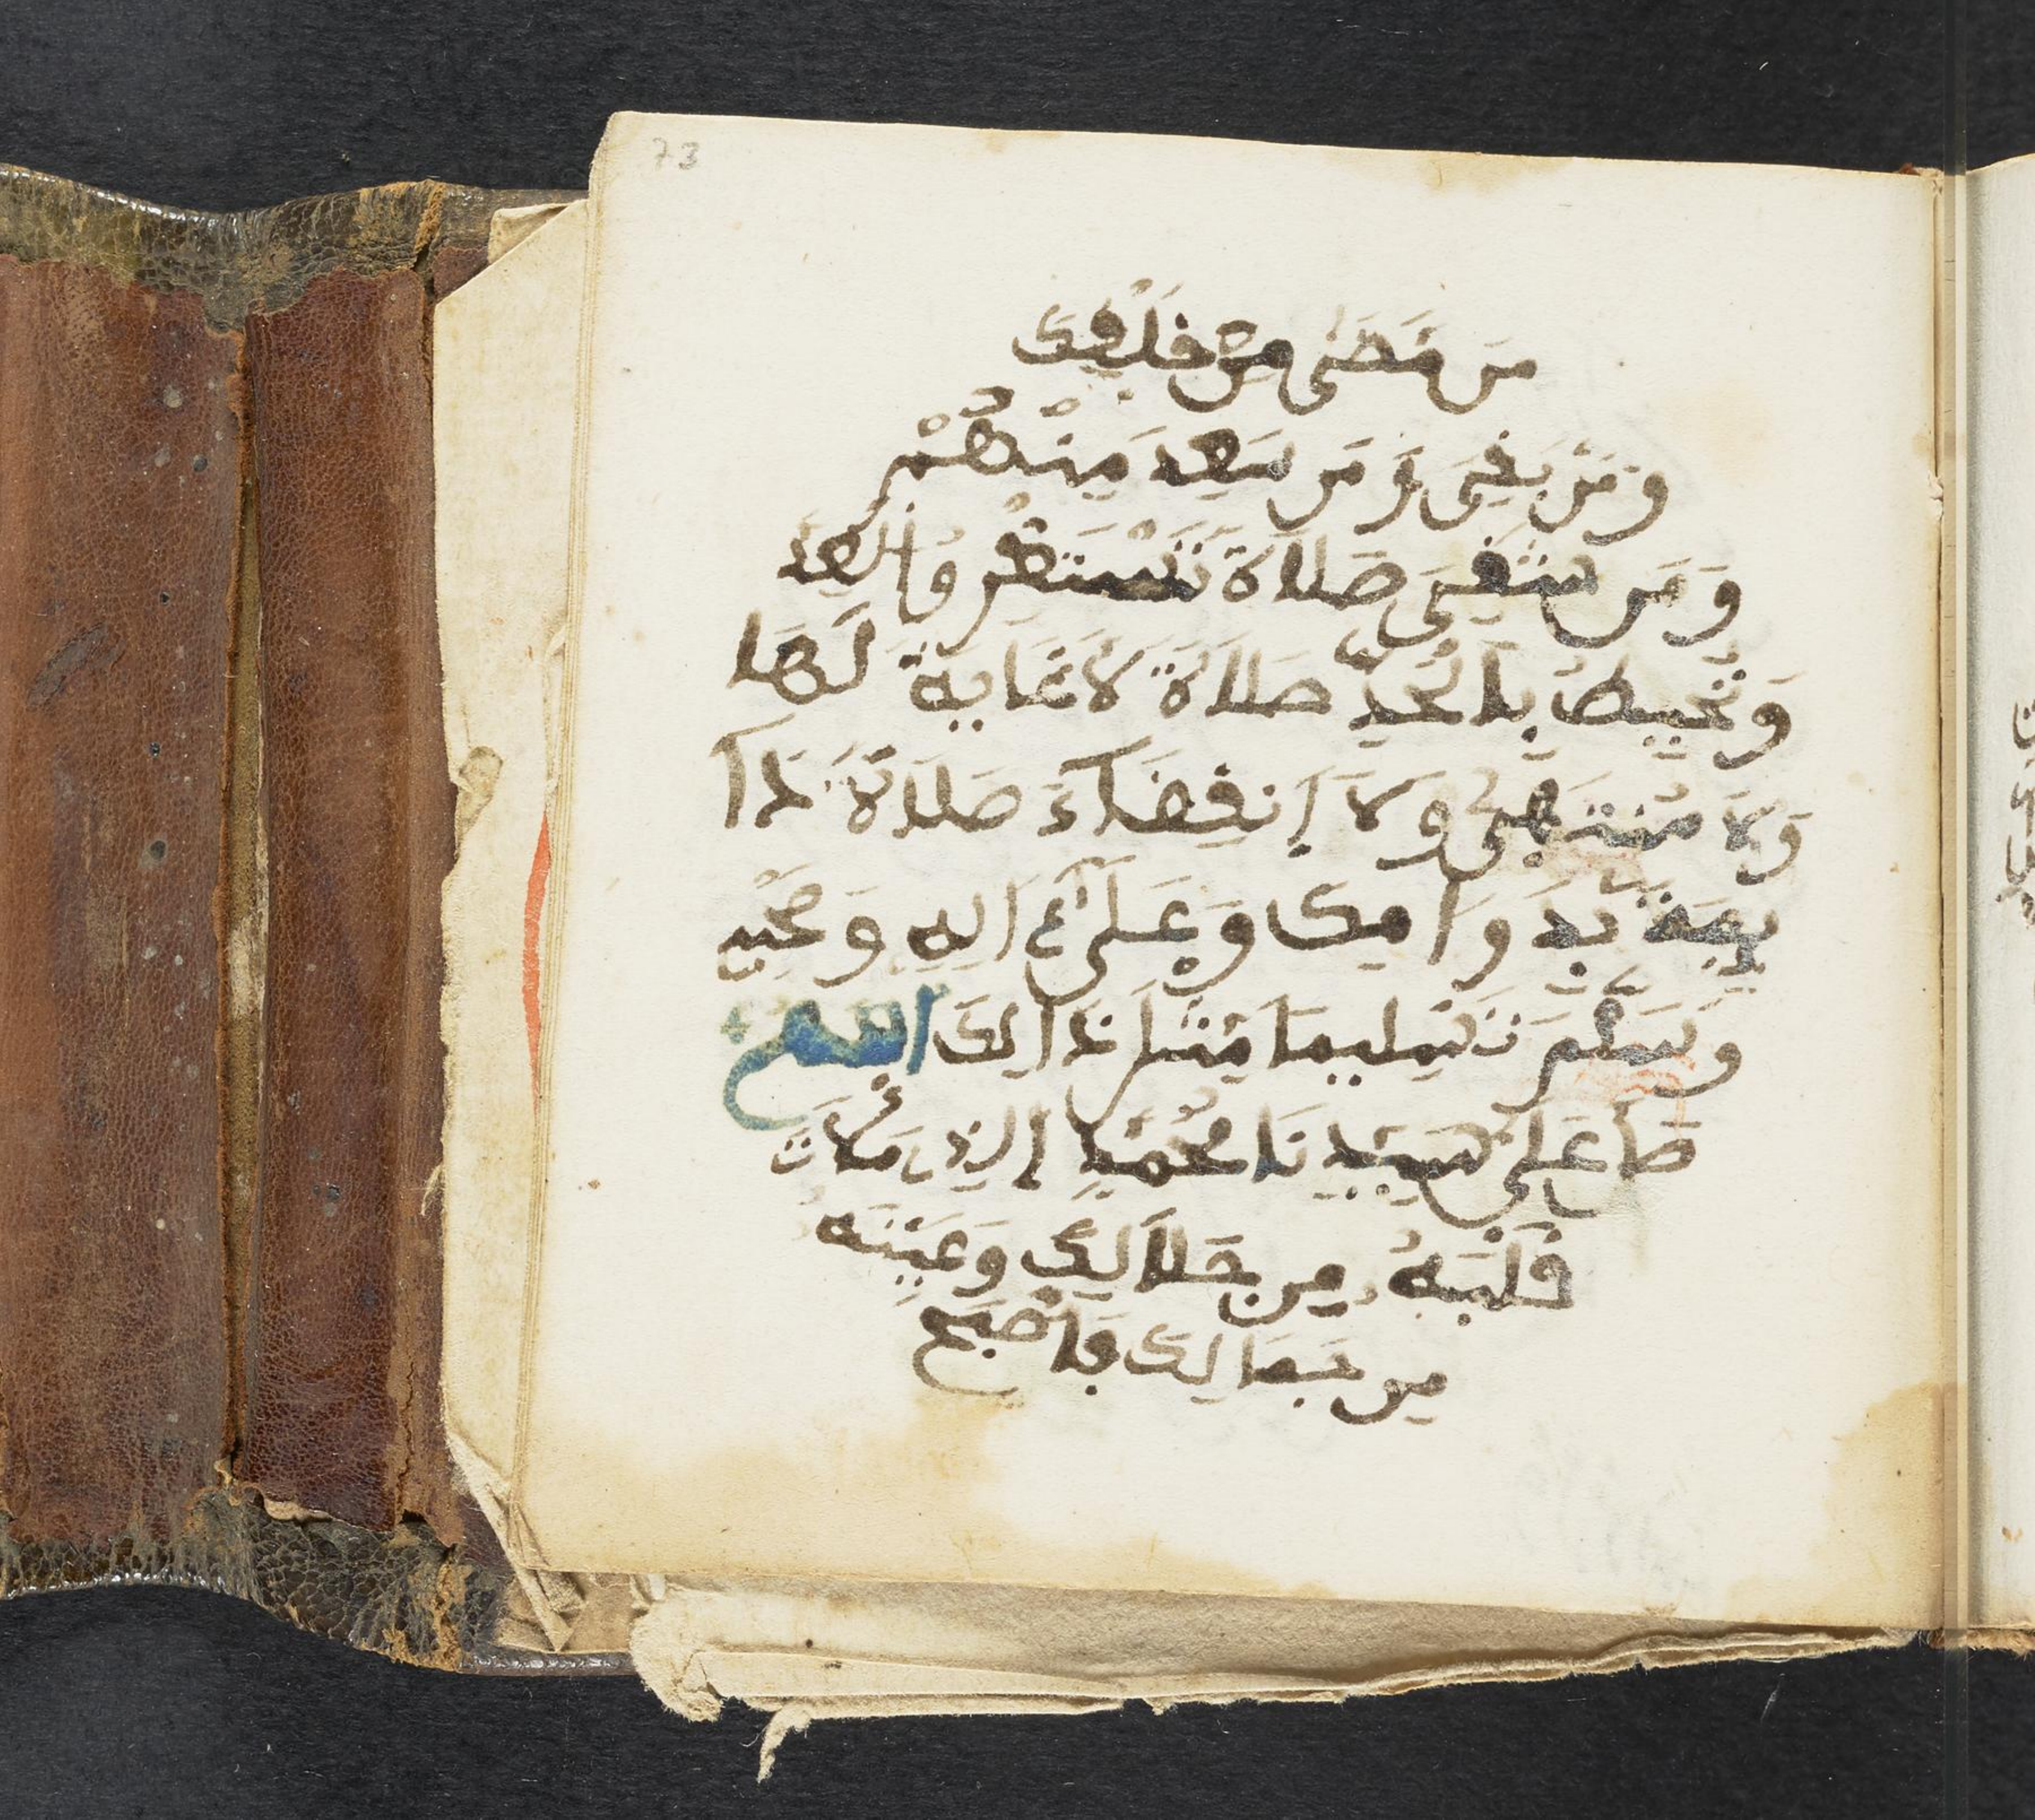 73
مَن مَضَى مِنْ خَلْفِكَ
وَمَنْ بَقِيَ وَمَن سَعِدَ مِنْهُمْ
وَمَن شَقِيَ صَلَاةً تَسْتَغْرِقُ الْعَدَّ
وَتُحِيطُ بِالْحَدِّ صَلَاةً لَا غَايَةَ لَهَا
وَلَا مُنْتَهَى وَلَا إِنقِضَاءَ صَلَاةً دَا
يِمَةً بِدَوَامِكَ وَعَلَى ءَالِهِ وَصَحْبِهِ
وَسَلِّمْ تَسْلِيمًا مِثْلَ ذَالِكَ اللهم
صَلِّ عَلَى سَيِّدِنَا مُحَمَّدٍ الذِي مَلَأْتَ
قَلْبَهُ مِن جَلَالِكَ وَعَيْنَهُ
مِن جَمَالِكَ فَأَصْبَحَ